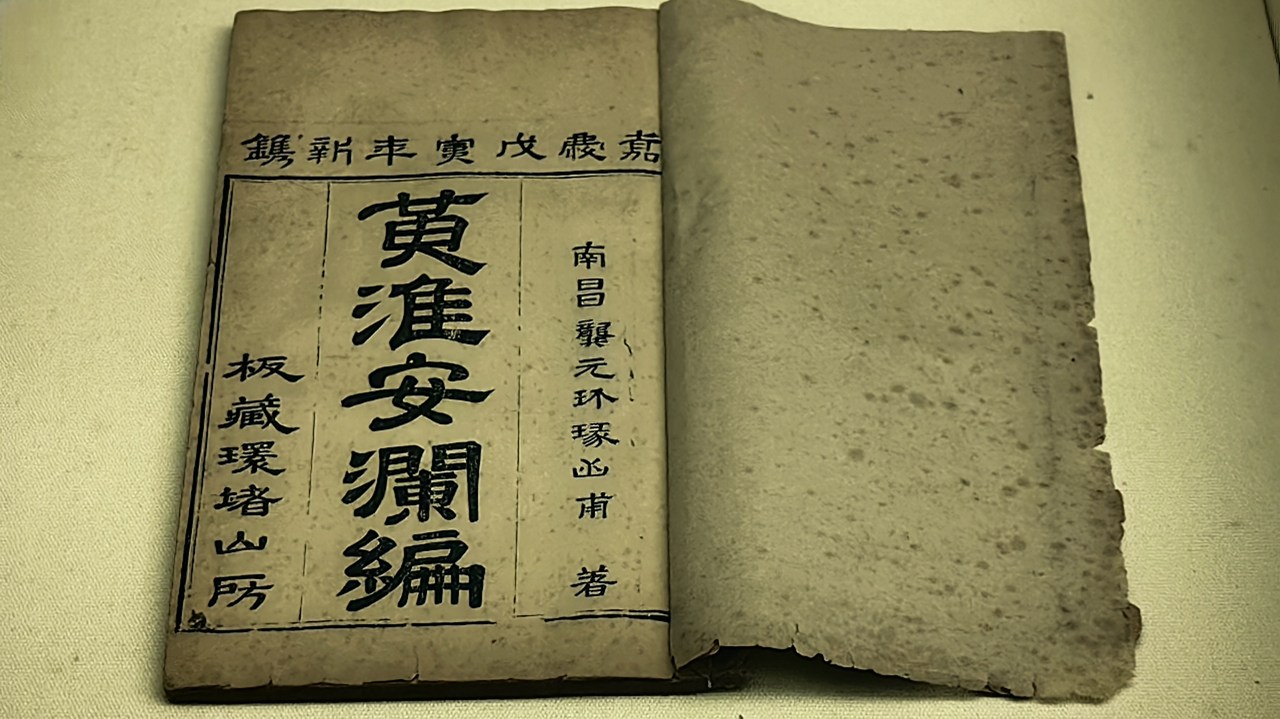 嘉慶戊寅年新鐫
南昌龔元玠瑑山甫 著
黃淮安瀾編
板藏環堵山房